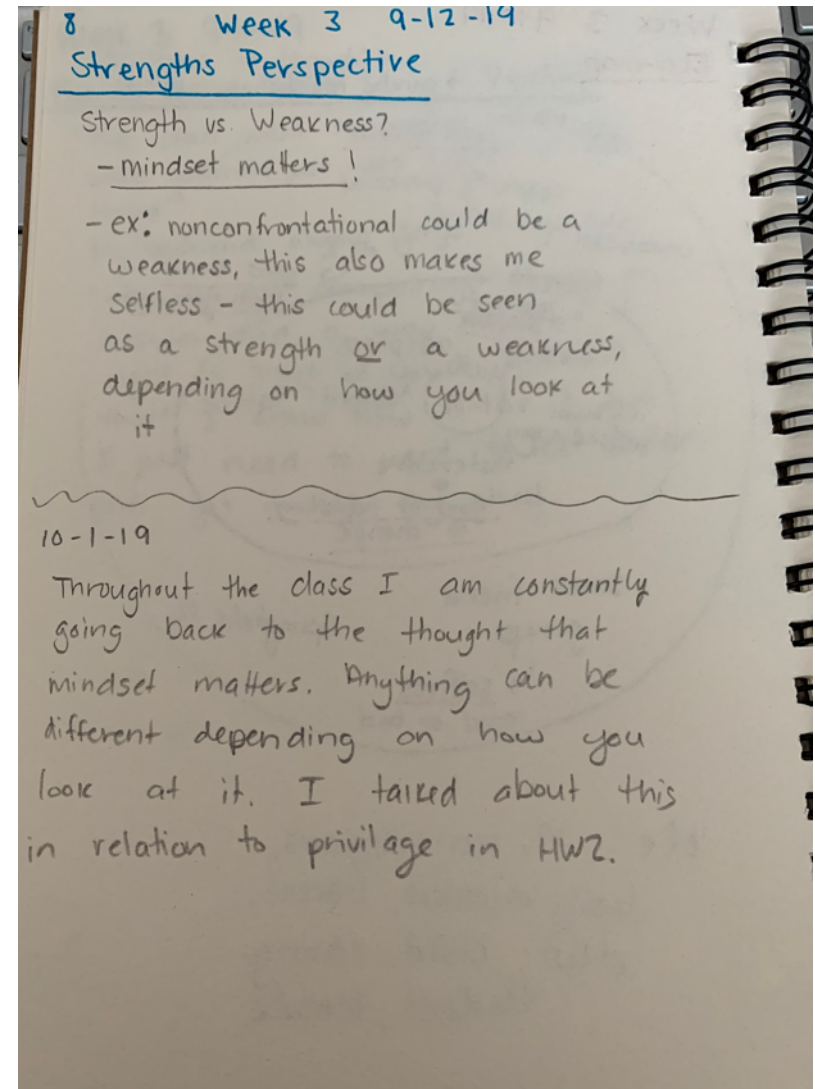 8 Week 3 9-12-19
Strengths Perspective
Strength vs. Weakness?
- mindset matters!
- ex: nonconfrontational could be a
weakness, this also makes me
selfless - this could be seen
as a strength or a weakness,
depending on how you look at
it
10-1-19
Throughout the class I am constantly
going back to the thought that
mindset matters. Anything can be
different depending on how you
look at it. I talked about this
in relation to privilage in HW2.